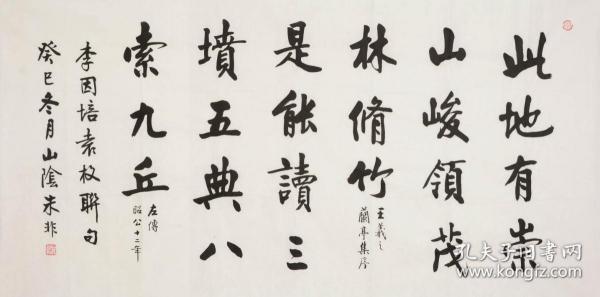 此地有崇
山峻領茂
林脩竹
王羲之
蘭亭集序
是能讀三
墳五典八
索九丘
左傳
昭公十二年
李因培袁枚聯句
癸巳冬月山陰朱非
孔夫子旧书网
www.kongfz.com